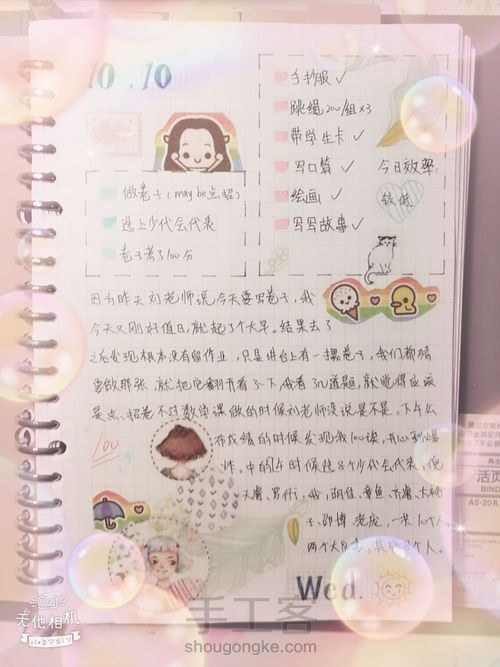 10.10
做卷子(may be点招)
选上少代会代表
卷子考了100分
手抄报✓
跳绳200/组×3
带学生卡✓
写口算✓
绘画✓
写写故事✓
今日效率:
较低
因为昨天刘老师说今天要写卷子,我
今天又刚好值日,就起了个大早。结果去了
之后发现根本没有留作业,只是讲台上有一摞卷子,我们
要做那张,就把它翻开看了一下,我看了几道题,就觉得应该
是点招卷不对数学课做的时候刘老师没说是不是。下午公
布成绩的时候发现我100诶,开心到爆
炸。中的时候选8个少代会代表,
100
子、一共10个人,
两个大队委,共8个人。
Wed.
无他相机
活页
BIND
A5·20R
手工客
shougongke.com